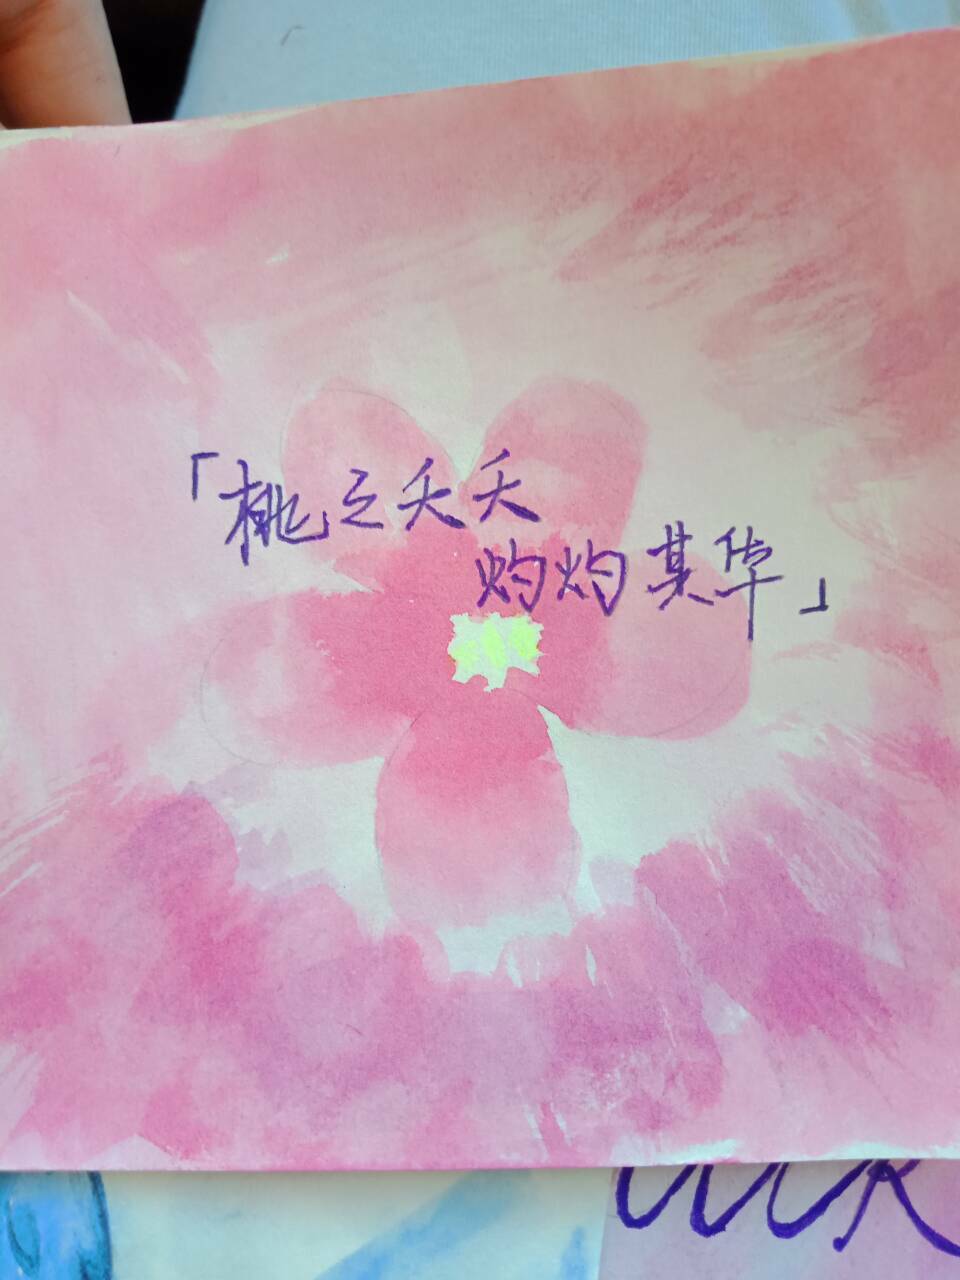 「桃之夭夭
灼灼其华」